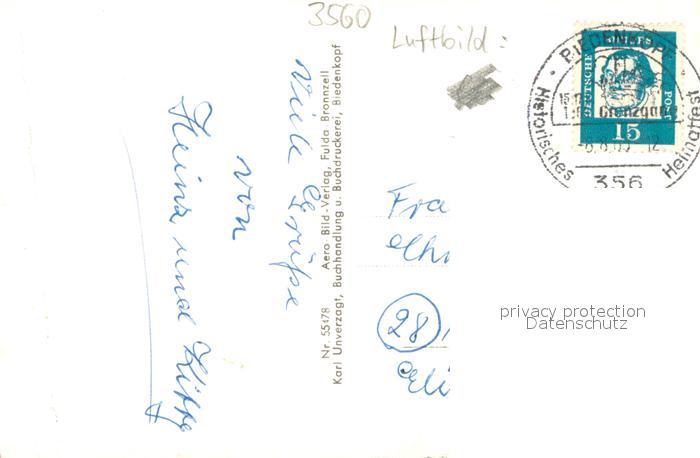 3560
Luftbild:
Viele Grüße
von
Heinz und
Nr. 55178 Aero-Bild-Verlag, Fulda Bronnzell
Karl Unverzagt, Buchhandlung u. Buchdruckerei, Biedenkopf
Fra
(28)
privacy protection
Datenschutz
DEUTSCHE BUNDESPOST
15
BIEDENKOPF
Grenzgang
12
Historisches Heimatfest
356